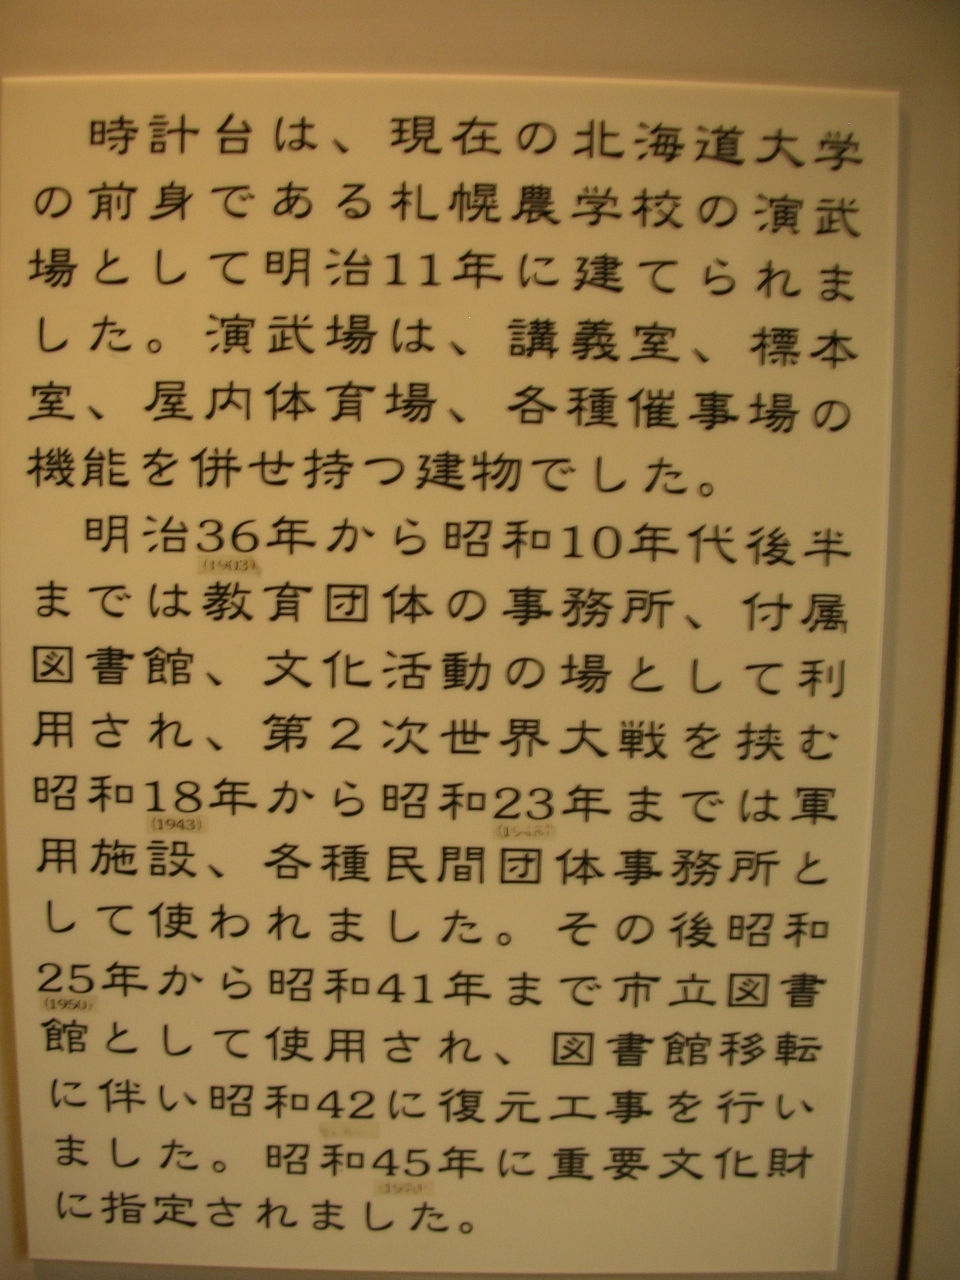 時計台は、現在の北海道大学
の前身である札幌農学校の演武
場として明治11年に建てられま
した。演武場は、講義室、標本
室、屋内体育場、各種催事場の
機能を併せ持つ建物でした。
明治36年から昭和10年代後半
(1903)
までは教育団体の事務所、付属
図書館、文化活動の場として利
用され、第2次世界大戦を挟む
昭和18年から昭和23年までは軍
(1943)
用施設、各種民間団体事務所と
して使われました。その後昭和
25年から昭和41年まで市立図書
(1950)
館として使用され、図書館移転
に伴い昭和42に復元工事を行い
ました。昭和45年に重要文化財
(1970)
に指定されました。